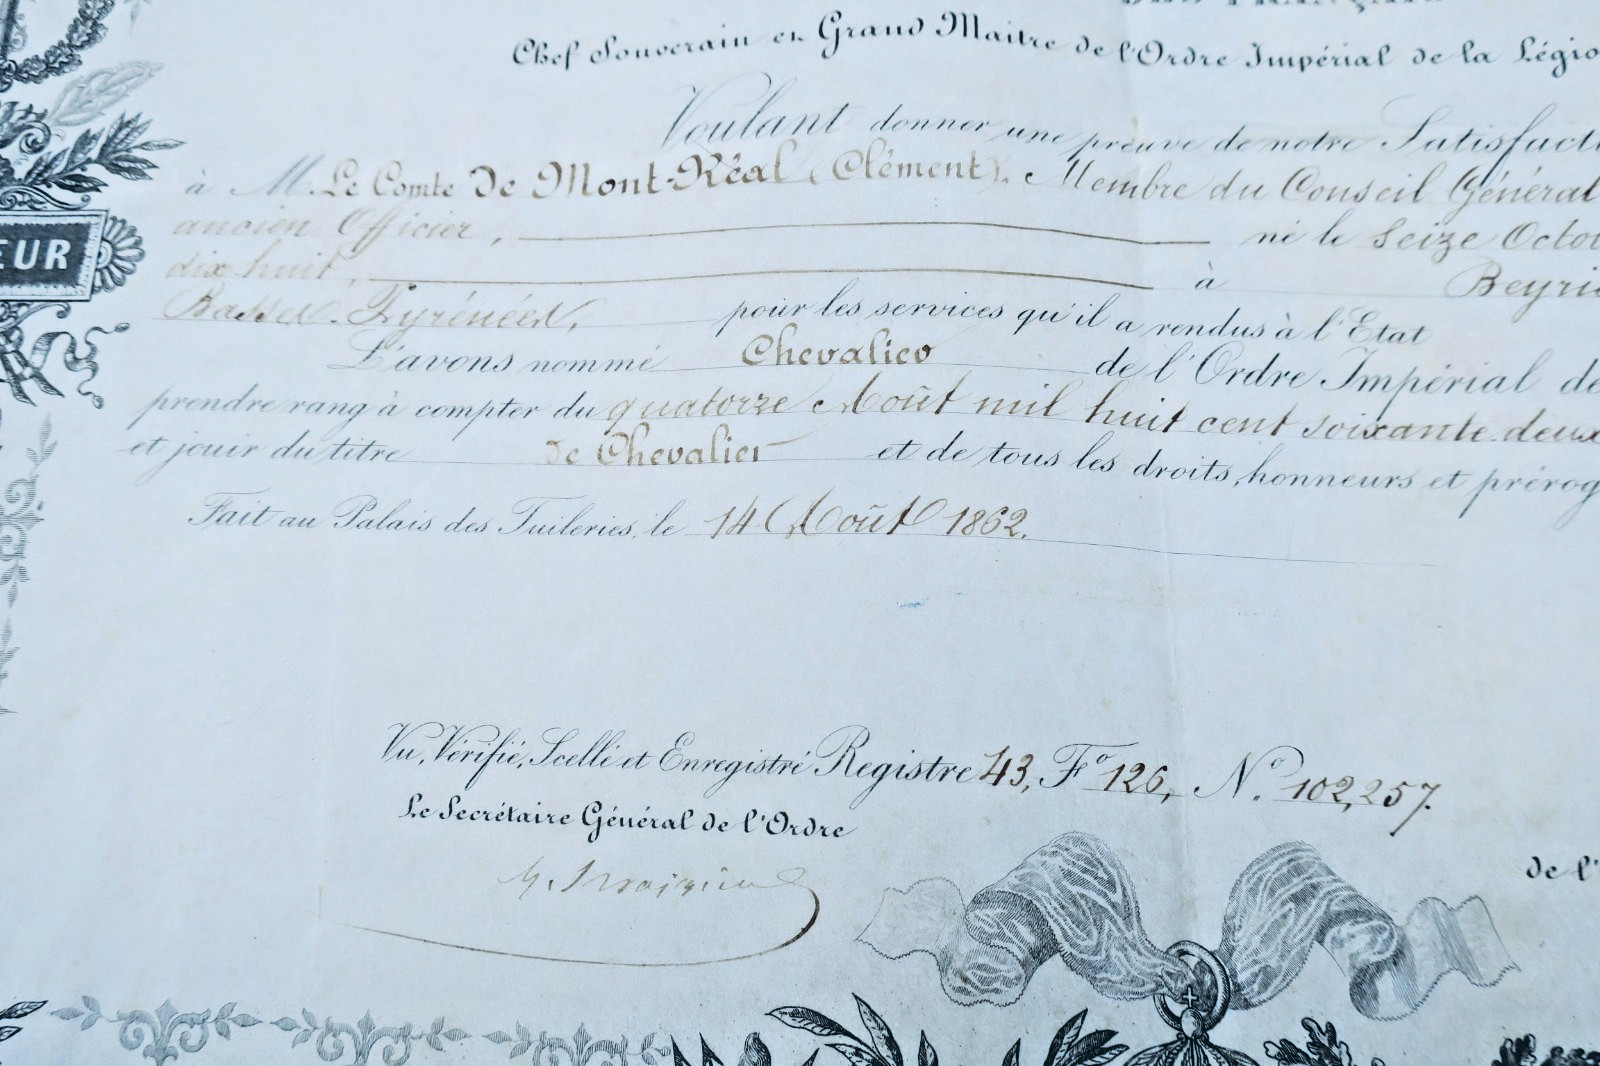 DES FRANÇAIS
Chef Souverain et Grand Maitre de l'Ordre Impérial de la Légio
Voulant donner une preuve de notre Satisfacti
à M. Le Comte de Mont-Réal (Clément), Membre du Conseil Général
ancien Officier, né le Seize Octo
EUR
dix huit, à Beyrie
Basses-Pyrénées, pour les services qu'il a rendus à l'Etat
L'avons nommé Chevalier de l'Ordre Impérial de
prendre rang à compter du quatorze Août mil huit cent soixante deux
et jouir du titre de Chevalier et de tous les droits, honneurs et prérog
Fait au Palais des Tuileries, le 14 Août 1862.
Vu, Vérifié, Scellé et Enregistré Registre 43, Fº 126, Nº. 102,257.
Le Secrétaire Général de l'Ordre
de l'